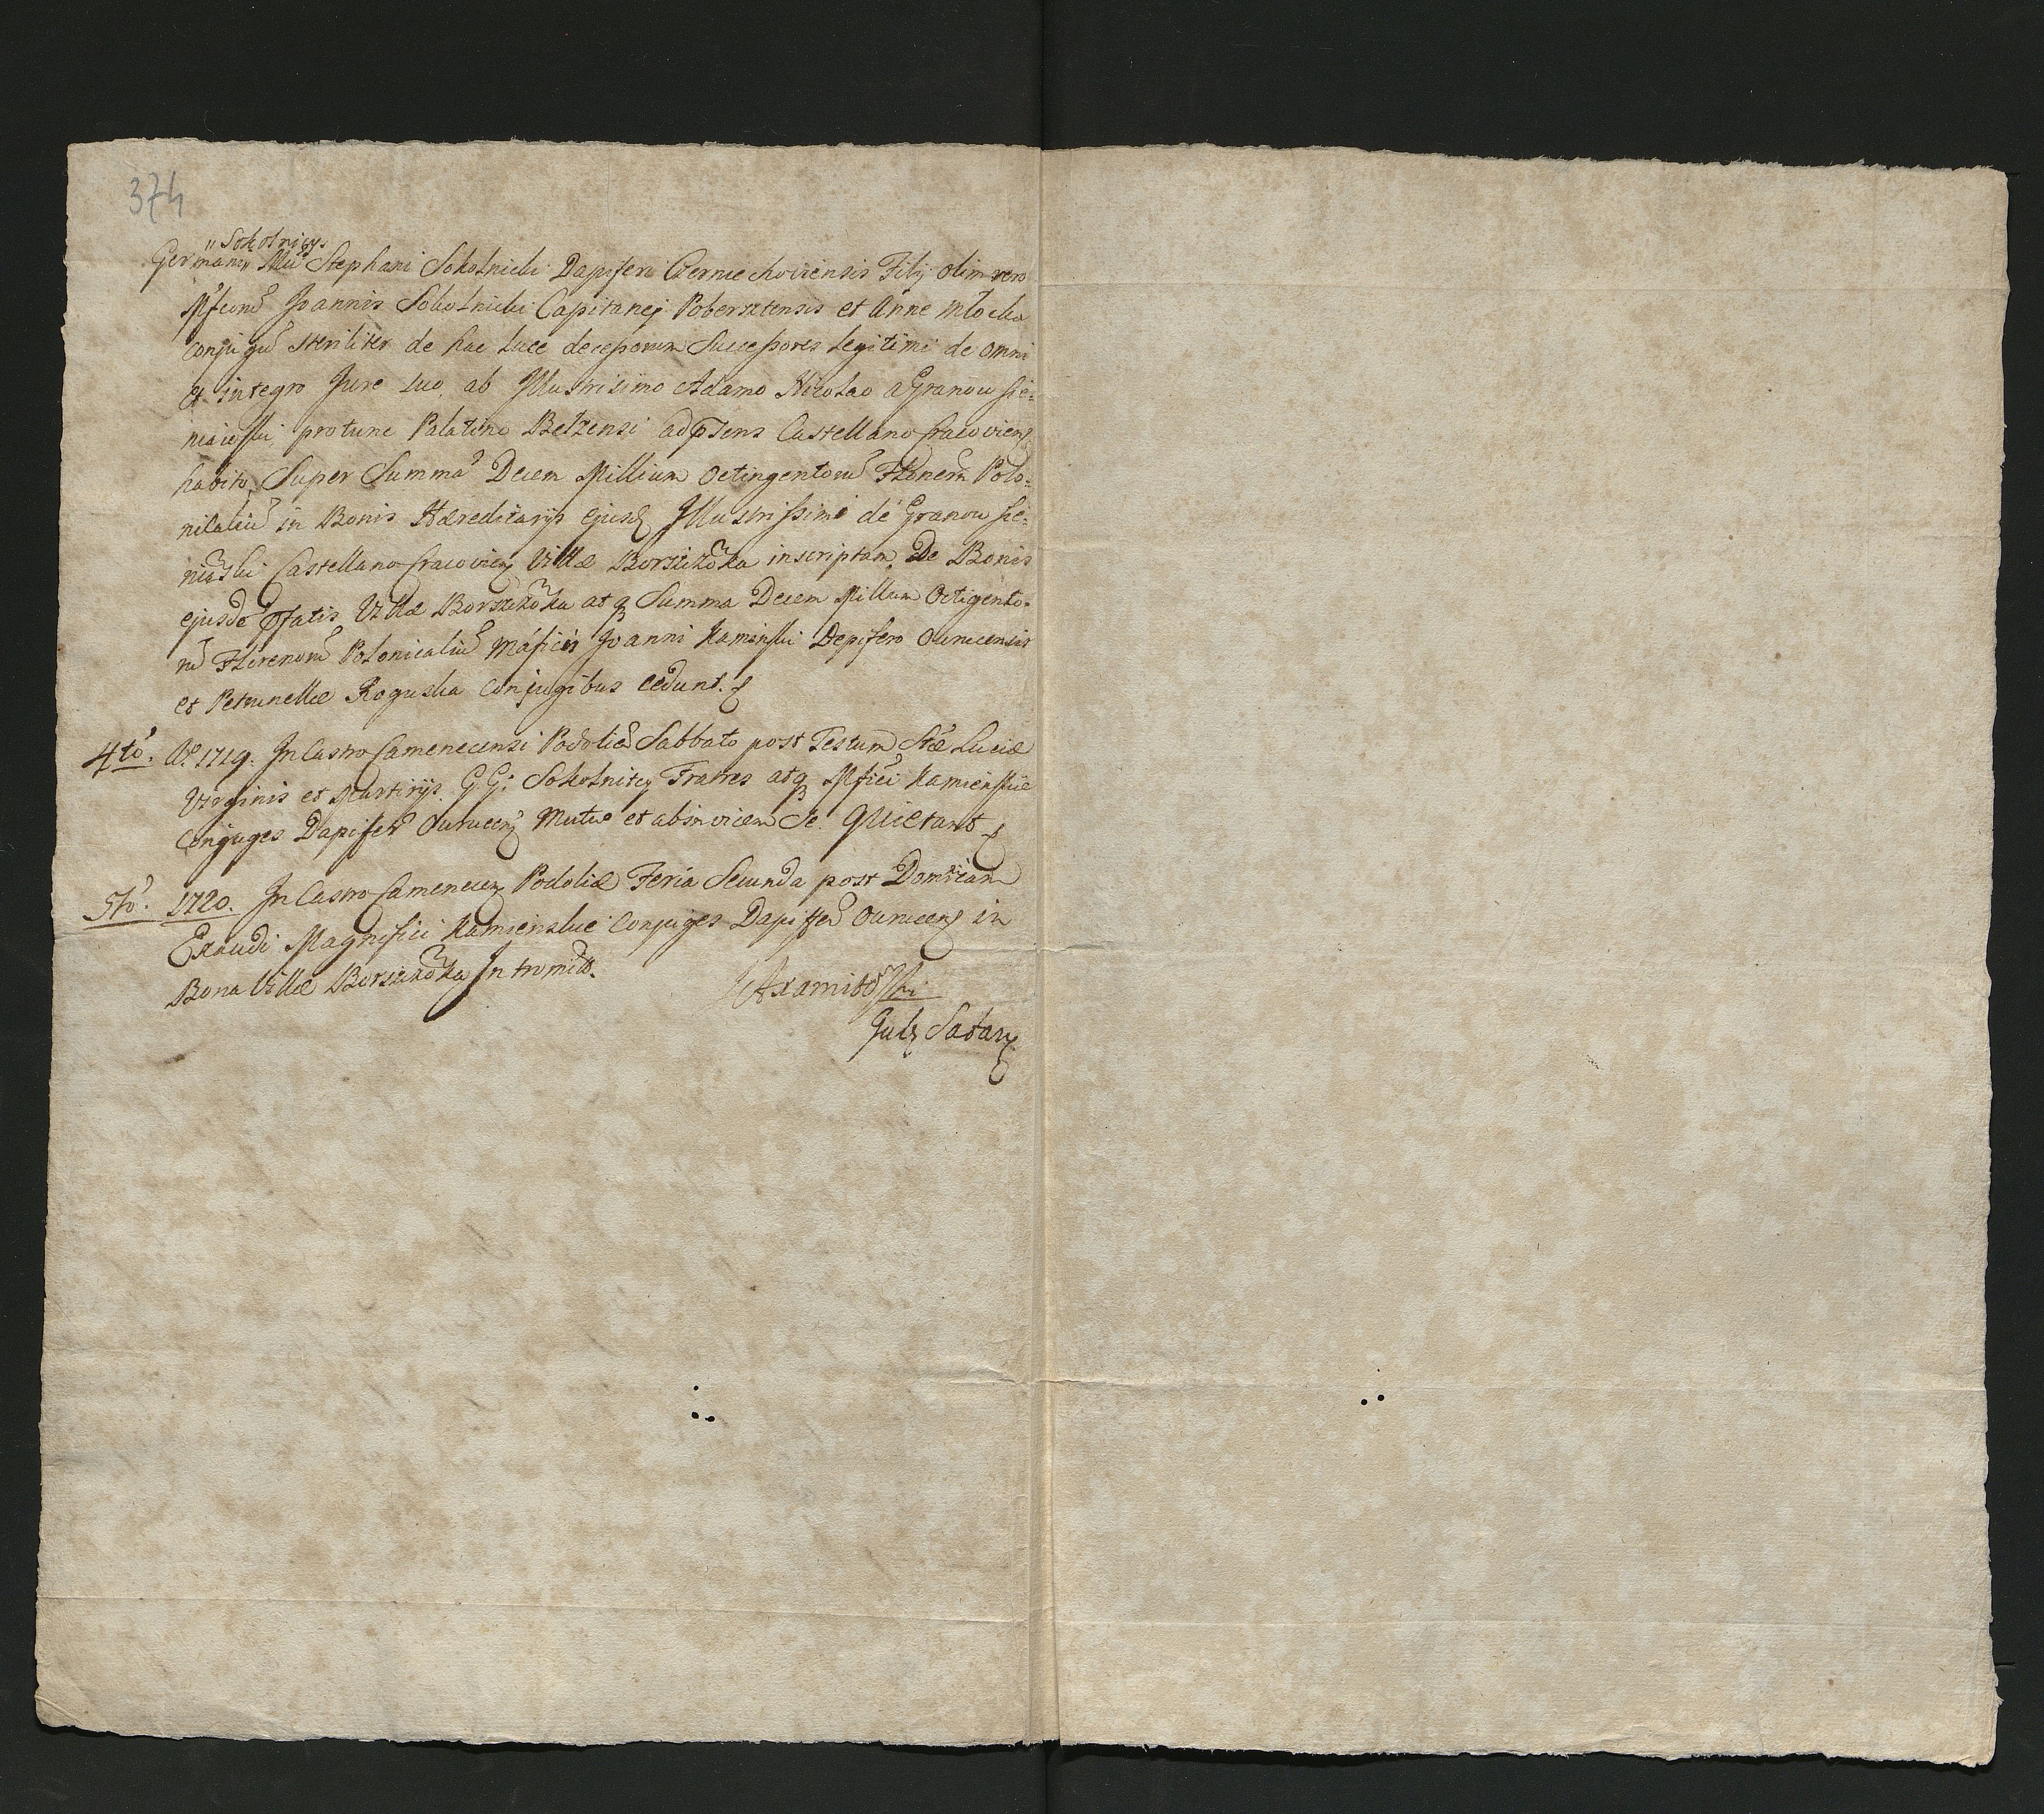 374
Sokolnicys
Germani Mci Stephani Sokolnicki Dapiferi Czerniechoviensis Filij olim vero
Mficorũ Joannis Sokolnicki Capitanej Poberezensis et Anne Młocka
Conjugũ steriliter de hac Luce decessorum Successores Legitimi de omni
et integro Jure suo, ab Illustrissimo Adamo Nicolao a Granow Sie=
niawski, pro tunc Palatino Belzensi ad psens Castellano Cracovien
habito, Super Summã Decem Millium Octingentorũ Flonerũ Polo=
nicaliũ in Bonis Hæreditarijs ejusd Illustrissimi de Granow Sie=
niawski Castellano Cracovien Villæ Borszczowka inscriptam. De Bonis
ejusdẽ pfatis Villæ Borszczowka atq Summa Decem Millium Octigento=
rũ Florenorũ Polonicaliũ Mãficis Joanni Kaminski Depifero Owrucensis
et Petrunellæ Roguska Conjugibus cedunt.
4to. Ao 1719. In Castro Camenecensi Podoliæ Sabbato post Festum Stæ Luciæ
Virginis et Martirijs. GG: Sokolnicy Fratres atq Mfici Kamienskie
Conjuges Dapiferi Owrucen Mutuo et abinvicem Se. Quietant
5to. 1720. In Castro Camenecen Podoliæ Feria Secunda post Domĩcam
Exaudi Magnifici Kamienskie Conjuges Dapifferi Owrucen in
Bona Villæ Borszczowka Intromitt.